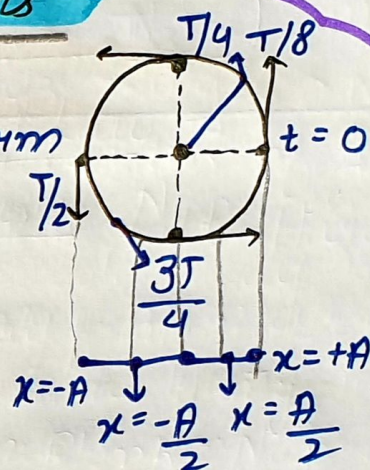 T/4 T/8
t = 0
T/2
3T/4
x=-A
x=+A
x=-A/2
x=A/2